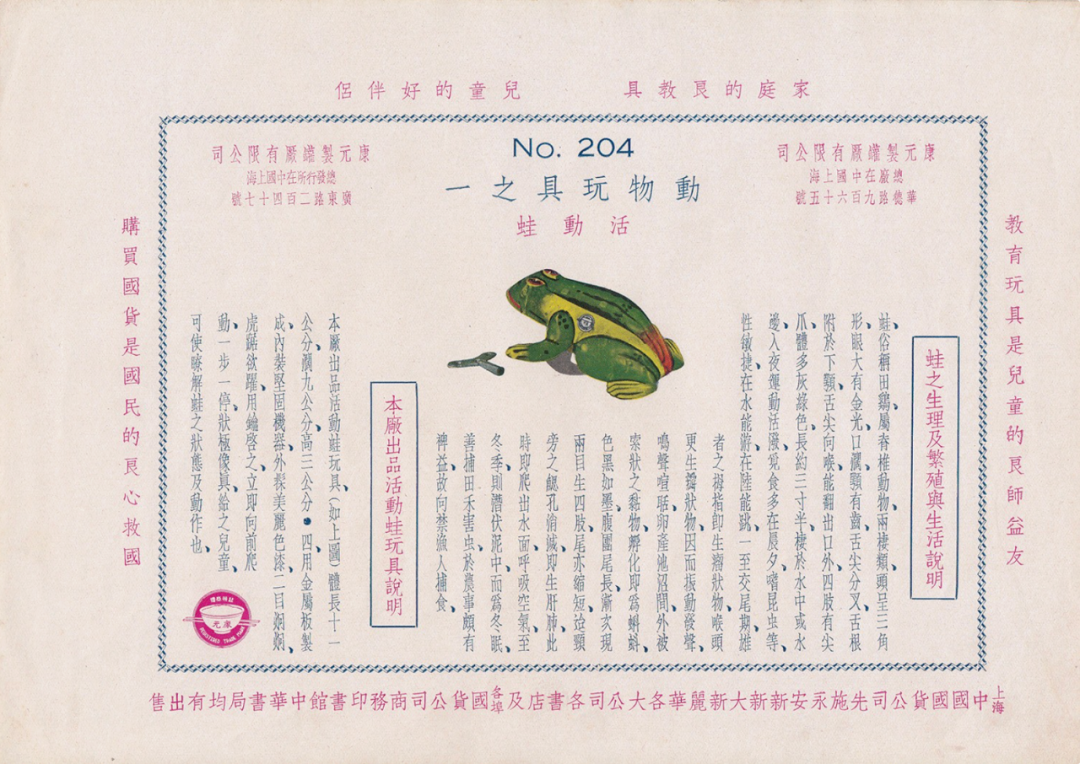 家庭的良教具
兒童的好伴侶
教育玩具是兒童的良師益友
康元製罐厰有限公司
總廠在中國上海
華德路九百六十五號
No. 204
動物玩具之一
活動蛙
康元製罐厰有限公司
總發行所在中國上海
廣東路二百四十七號
蛙之生理及繁殖與生活說明
蛙、俗稱田鷄、屬脊椎動物兩棲類、頭呈三角
形、眼大有金光、口濶、顎有齒、舌尖分叉、舌根
附於下顎、舌尖向喉、能翻出口外、四肢有尖
爪、體多灰綠色、長約三寸半、棲於水中或水
邊、入夜運動活潑、覓食多在晨夕、嗜昆虫等、
性敏捷、在水能游、在陸能跳、一至交尾期、雄
者之拇指即生瘤狀物、喉頭
更生囊狀物、因而振動發聲、
鳴聲喧聒、卵產池沼間、外被
狀之黏物、孵化即爲蝌蚪、
色黑如墨、腹圓尾長、漸次現
兩目、生四肢、尾亦縮短、迨頸
旁之鰓孔消滅、即生肝肺、此
時即爬出水面、呼吸空氣、至
冬季則潛伏泥中而爲冬眠、
善捕田禾害虫、於農事頗有
裨益、故向禁漁人捕食、
本廠出品活動蛙玩具說明
本廠出品活動蛙玩具、(如上圖)體長十一
公分、濶九公分、高三公分●四用金屬板製
成、內裝堅固機器、外探美麗色漆、二目炯炯、
虎踞欲躍、用鑰啓之、立即向前爬
動、一步一停、狀極像真、給之兒童、
可使暸解蛙之狀態及動作也、
康元
TRADE MARK
購買國貨是國民的良心救國
上海中國國貨公司先施永安新新大新麗華各大公司各書店及各埠國貨公司商務印書館中華書局均有出售